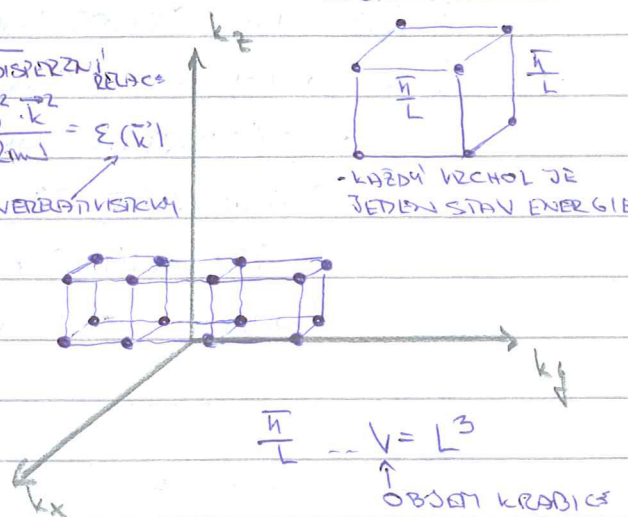 k_z
DISPERZNÍ
RELACE
ħ² · k⃗² / 2m = ε(k⃗)
NERELATIVISTICKY
π/L
π/L
- KAŽDÝ VRCHOL JE
JEDEN STAV ENERGIE
k_y
π/L -- V = L³
OBJEM KRABICE
k_x